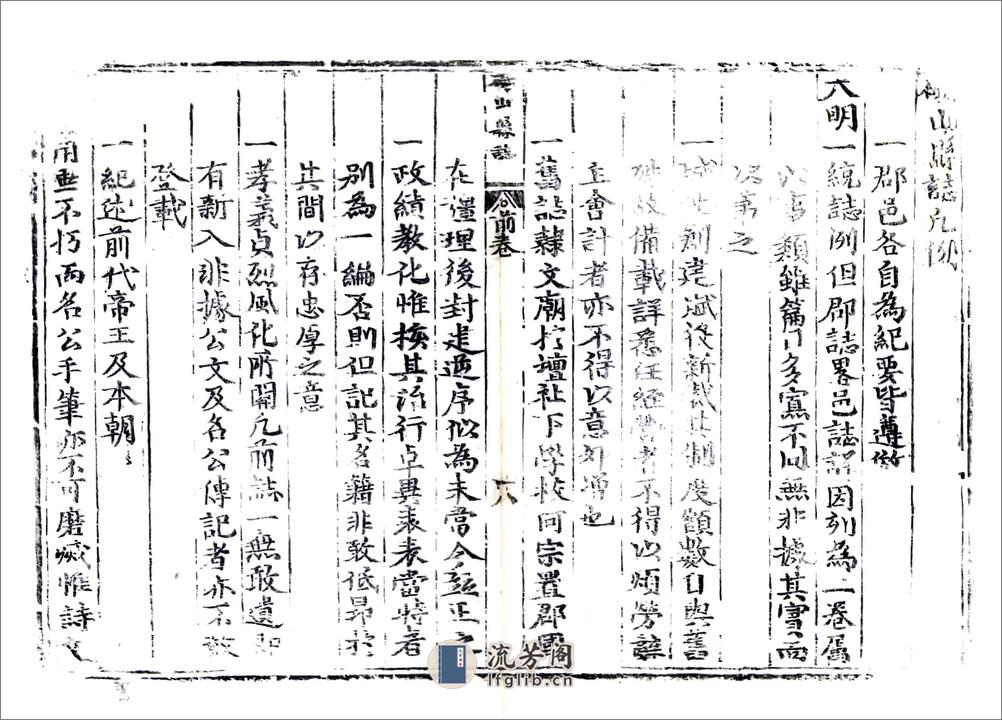 山縣誌凡例
一郡邑各自為紀要皆遵倣
大明一統誌例但郡誌畧邑誌詳因列為二卷屬
類雖篇目多寡不同無非據其實而
次第之
一城池創建賦役新裁其制度額數自與舊
故備載詳悉任經營者不得以煩勞辭
主會計者亦不得以意外增也
一舊誌隸文廟於壇社下學校何宗置郡
在疆理後封建逆序似為未當今茲正之
一政績教化惟核其治行卓異表表當特者
別為一編否則但記其名籍非敢低昂於
其間以存忠厚之意
一孝義貞烈風化所關凡前誌一無敢遺即
有新入非據公文及名公傳記者亦不敢
登載
一紀述前代帝王及本朝
用垂不朽而名公手筆亦不可磨滅惟詩文
山縣誌
前卷
六
流芳阁
lfglib.cn